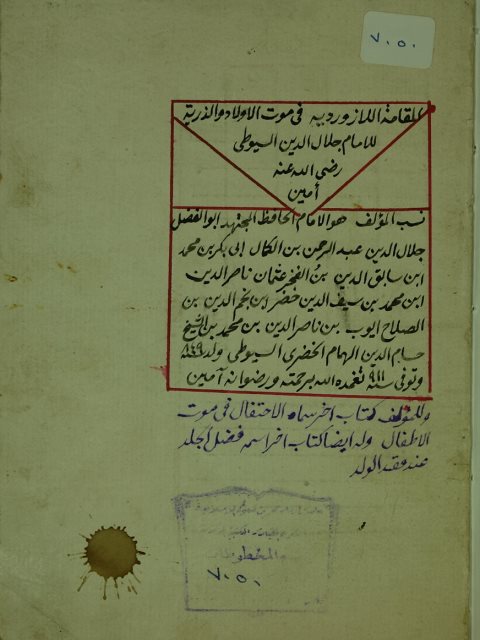 ٧٠٥٠
المقامة اللازوردية فى موت الاولاد والذرية
للامام جلال الدين السيوطى
رضى الله عنه
أمين
نسب المؤلف هو الامام الحافظ المجتهد ابو الفضل
جلال الدين عبد الرحمن بن الكمال ابى بكر بن محمد
ابن سابق الدين بن الفخر عثمان ناصر الدين
ابن محمد بن سيف الدين خضر ابن نجم الدين بن
الصلاح ايوب بن ناصر الدين بن محمد بن الشيخ
همام الدين الهمام الخضرى السيوطى ولد سنة ٨٤٩
وتوفى سنة ٩١١ تغمده الله برحمته ورضوانه آمين
وللمؤلف كتاب اخر سماه الاحتفال فى موت
الاطفال وله ايضا كتاب اخر اسمه فضل الجلد
عند فقد الولد
والمخطوطات
٧٠٥٠